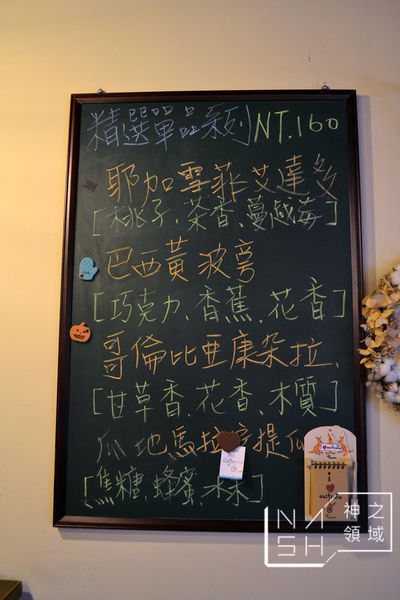 精選單品系列 NT.160
耶加雪菲艾達多
[桃子.茶香.蔓越莓]
巴西黃波旁
[巧克力.香蕉.花香]
哥倫比亞康朵拉.
[甘草香.花香.木質]
瓜地馬拉安提瓜
[焦糖.蜂蜜.木]
NASH 神之領域